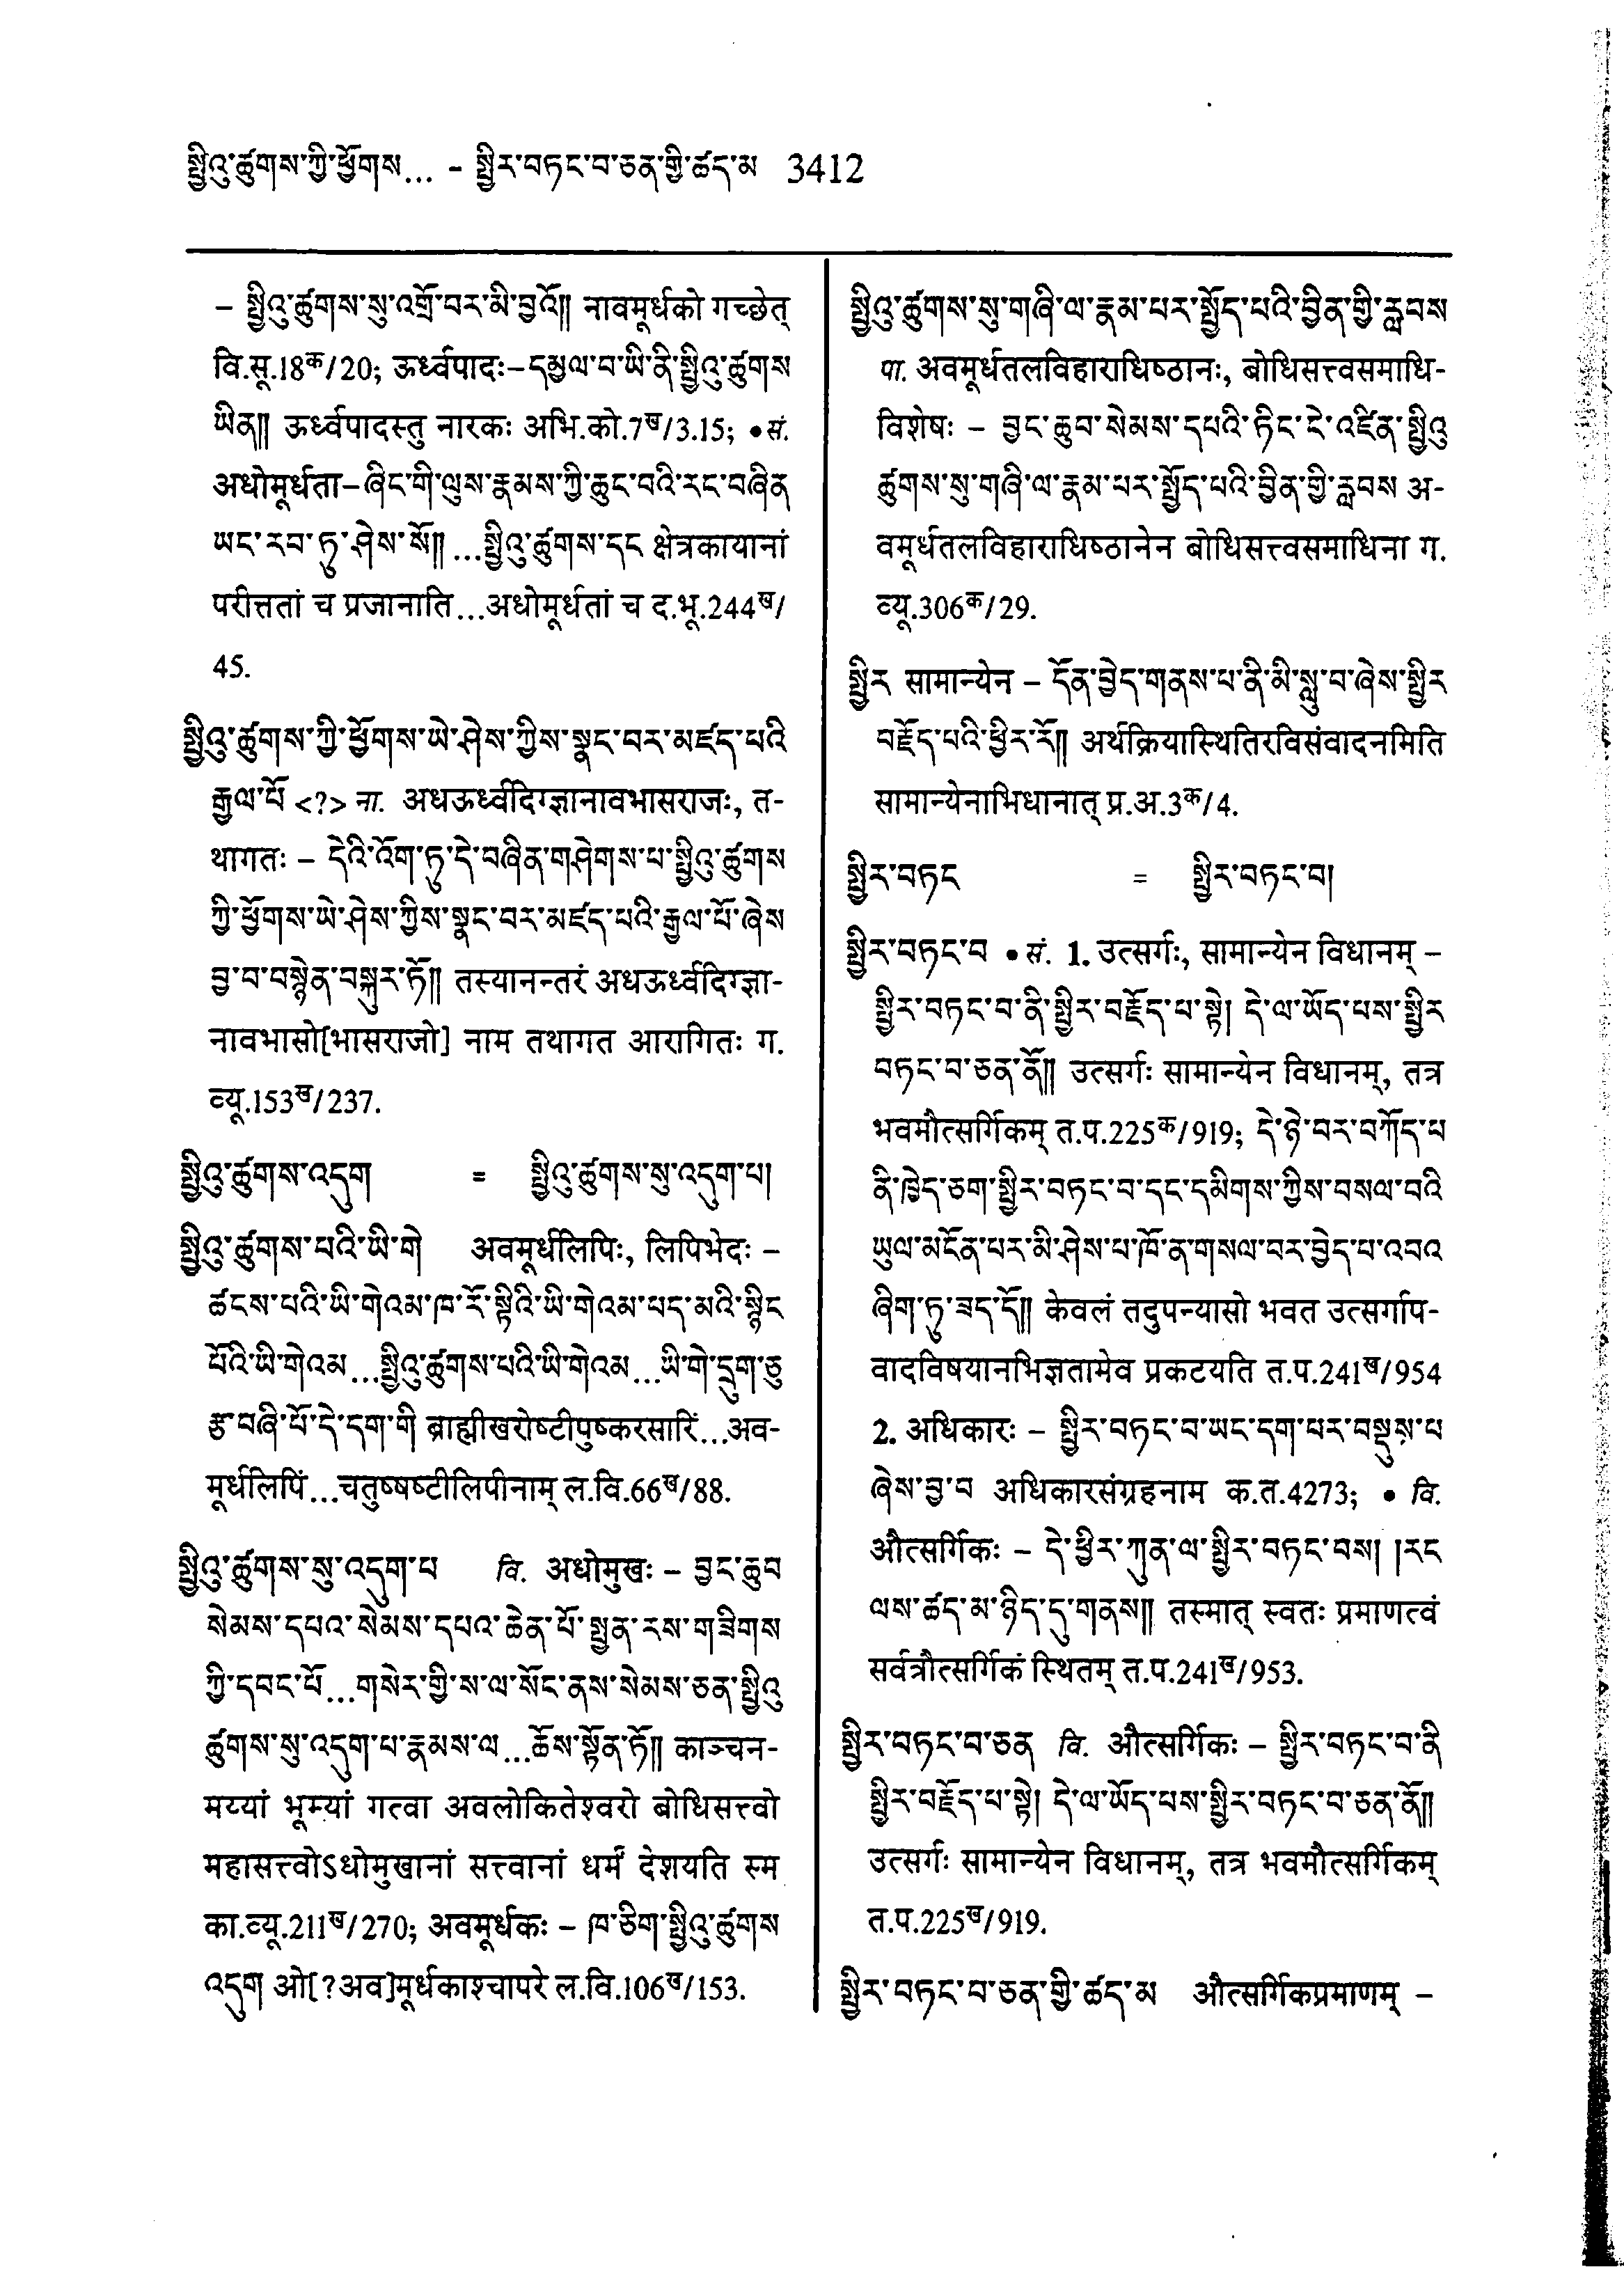 སྤྱིའུ་ཚུགས་ཀྱི་ཕྱོགས... - སྤྱིར་བཏང་བ་ཅན་གྱི་ཚད་མ 3412
– སྤྱིའུ་ཚུགས་སུ་འགྲོ་བར་མི་བྱའོ།། नावमूर्धको गच्छेत्
वि.सू.18क/20; ऊर्ध्वपादः–དམྱལ་བ་ཡི་ནི་སྤྱིའུ་ཚུགས
ཡིན།། ऊर्ध्वपादस्तु नारकः अभि.को.7ख/3.15; •सं.
अधोमूर्धता–ཞིང་གི་ལུས་རྣམས་ཀྱི་ཆུང་བའི་རང་བཞིན
ཡང་རབ་ཏུ་ཤེས་སོ།། ...སྤྱིའུ་ཚུགས་དང क्षेत्रकायानां
परीत्ततां च प्रजानाति...अधोमूर्धतां च द.भू.244ख/
45.
སྤྱིའུ་ཚུགས་ཀྱི་ཕྱོགས་ཡེ་ཤེས་ཀྱིས་སྣང་བར་མཛད་པའི
རྒྱལ་པོ <?> ना. अधऊर्ध्वदिग्ज्ञानावभासराजः, त-
थागतः – དེའི་འོག་ཏུ་དེ་བཞིན་གཤེགས་པ་སྤྱིའུ་ཚུགས
ཀྱི་ཕྱོགས་ཡེ་ཤེས་ཀྱིས་སྣང་བར་མཛད་པའི་རྒྱལ་པོ་ཞེས
བྱ་བ་བསྙེན་བསྐུར་ཏོ།། तस्यानन्तरं अधऊर्ध्वदिग्ज्ञा-
नावभासो[भासराजो] नाम तथागत आरागितः ग.
व्यू.153ख/237.
སྤྱིའུ་ཚུགས་འདུག = སྤྱིའུ་ཚུགས་སུ་འདུག་པ།
སྤྱིའུ་ཚུགས་པའི་ཡི་གེ अवमूर्धलिपिः, लिपिभेदः –
ཚངས་པའི་ཡི་གེའམ་ཁ་རོ་སྟིའི་ཡི་གེའམ་པད་མའི་སྙིང
པོའི་ཡི་གེའམ...སྤྱིའུ་ཚུགས་པའི་ཡི་གེའམ...ཡི་གེ་དྲུག་ཅུ
རྩ་བཞི་པོ་དེ་དག་གི ब्राह्मीखरोष्टीपुष्करसारिं...अव-
मूर्धलिपिं...चतुष्षष्टीलिपीनाम् ल.वि.66ख/88.
སྤྱིའུ་ཚུགས་སུ་འདུག་པ वि. अधोमुखः – བྱང་ཆུབ
སེམས་དཔའ་སེམས་དཔའ་ཆེན་པོ་སྤྱན་རས་གཟིགས
ཀྱི་དབང་པོ...གསེར་གྱི་ས་ལ་སོང་ནས་སེམས་ཅན་སྤྱིའུ
ཚུགས་སུ་འདུག་པ་རྣམས་ལ...ཆོས་སྟོན་ཏོ།། काञ्चन-
मय्यां भूम्यां गत्वा अवलोकितेश्वरो बोधिसत्त्वो
महासत्त्वोऽधोमुखानां सत्त्वानां धर्मं देशयति स्म
का.व्यू.211ख/270; अवमूर्धकः – ཁ་ཅིག་སྤྱིའུ་ཚུགས
འདུག ओ[?अव]मूर्धकाश्चापरे ल.वि.106ख/153.
སྤྱིའུ་ཚུགས་སུ་གཞི་ལ་རྣམ་པར་སྤྱོད་པའི་བྱིན་གྱི་རླབས
पा. अवमूर्धतलविहाराधिष्ठानः, बोधिसत्त्वसमाधि-
विशेषः – བྱང་ཆུབ་སེམས་དཔའི་ཏིང་ངེ་འཛིན་སྤྱིའུ
ཚུགས་སུ་གཞི་ལ་རྣམ་པར་སྤྱོད་པའི་བྱིན་གྱི་རླབས अ-
वमूर्धतलविहाराधिष्ठानेन बोधिसत्त्वसमाधिना ग.
व्यू.306क/29.
སྤྱིར सामान्येन – དོན་བྱེད་གནས་པ་ནི་མི་སླུ་བ་ཞེས་སྤྱིར
བརྗོད་པའི་ཕྱིར་རོ།། अर्थक्रियास्थितिरविसंवादनमिति
सामान्येनाभिधानात् प्र.अ.3क/4.
སྤྱིར་བཏང = སྤྱིར་བཏང་བ།
སྤྱིར་བཏང་བ •सं. 1. उत्सर्गः, सामान्येन विधानम् –
སྤྱིར་བཏང་བ་ནི་སྤྱིར་བརྗོད་པ་སྟེ། དེ་ལ་ཡོད་པས་སྤྱིར
བཏང་བ་ཅན་ནོ།། उत्सर्गः सामान्येन विधानम्, तत्र
भवमौत्सर्गिकम् त.प.225क/919; དེ་ཉེ་བར་བཀོད་པ
ནི་ཁྱེད་ཅག་སྤྱིར་བཏང་བ་དང་དམིགས་ཀྱིས་བསལ་བའི
ཡུལ་མངོན་པར་མི་ཤེས་པ་ཁོ་ན་གསལ་བར་བྱེད་པ་འབའ
ཞིག་ཏུ་ཟད་དོ།། केवलं तदुपन्यासो भवत उत्सर्गाप-
वादविषयानभिज्ञतामेव प्रकटयति त.प.241ख/954
2. अधिकारः – སྤྱིར་བཏང་བ་ཡང་དག་པར་བསྡུས་པ
ཞེས་བྱ་བ अधिकारसंग्रहनाम क.त.4273; • वि.
औत्सर्गिकः – དེ་ཕྱིར་ཀུན་ལ་སྤྱིར་བཏང་བས། །རང
ལས་ཚད་མ་ཉིད་དུ་གནས།། तस्मात् स्वतः प्रमाणत्वं
सर्वत्रौत्सर्गिकं स्थितम् त.प.241ख/953.
སྤྱིར་བཏང་བ་ཅན वि. औत्सर्गिकः – སྤྱིར་བཏང་བ་ནི
སྤྱིར་བརྗོད་པ་སྟེ། དེ་ལ་ཡོད་པས་སྤྱིར་བཏང་བ་ཅན་ནོ།།
उत्सर्गः सामान्येन विधानम्, तत्र भवमौत्सर्गिकम्
त.प.225ख/919.
སྤྱིར་བཏང་བ་ཅན་གྱི་ཚད་མ औत्सर्गिकप्रमाणम् –